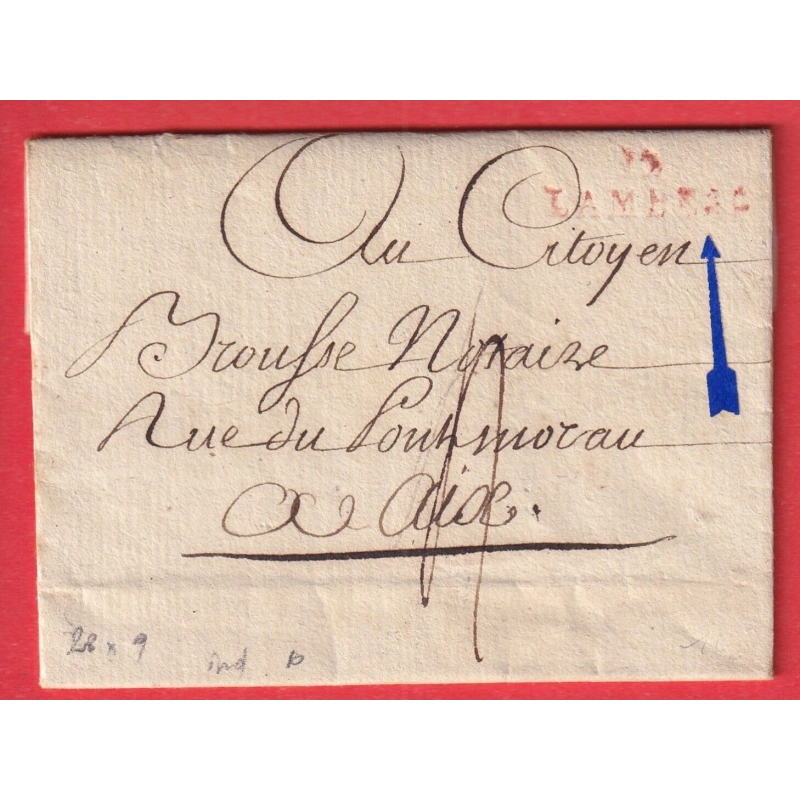 LAMBESC
Au Citoyen
Brousse Notaire
Rue du Pontmorau
A Aix.
28 x 9
ind